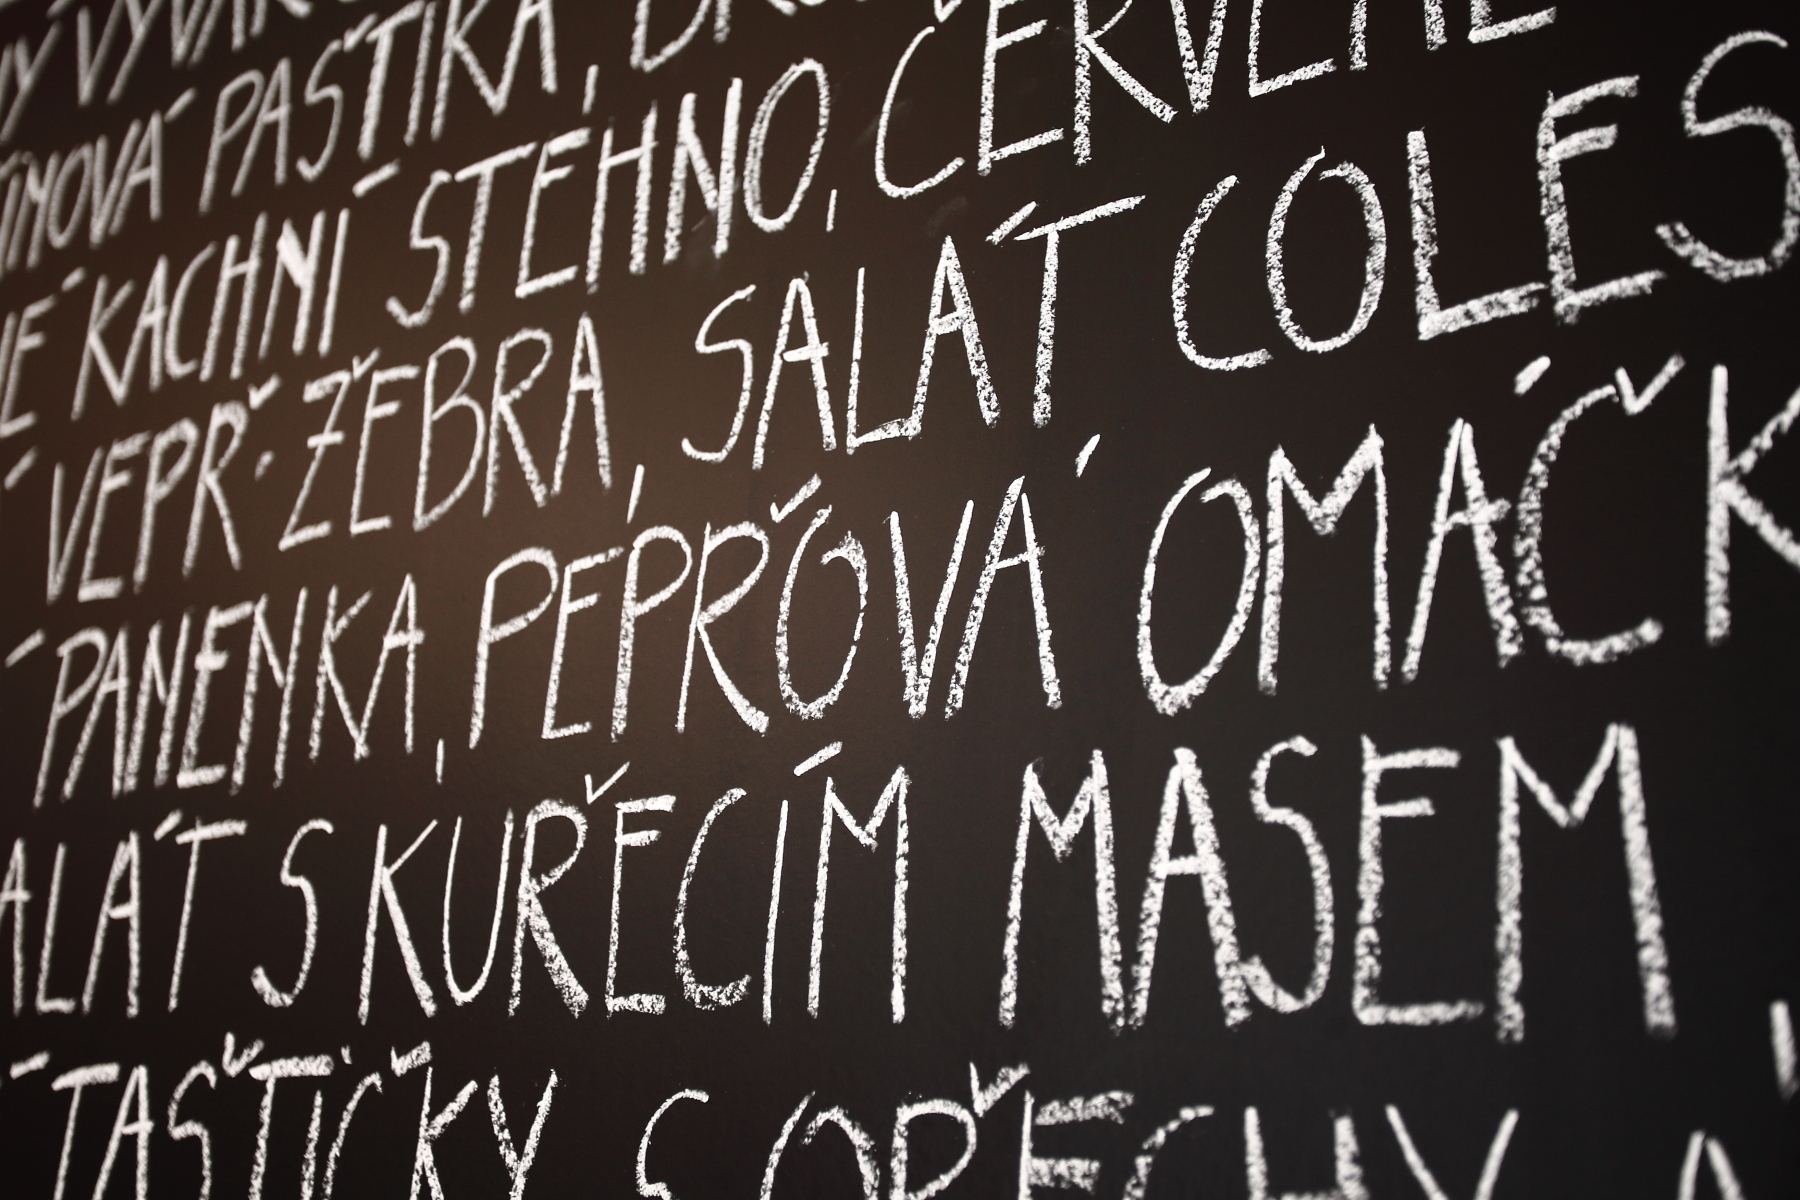 VÝVAR
PAŠTIKA,
KACHNÍ STEHNO, ČERVENÉ
VEPŘ. ŽEBRA, SALÁT COLES
PANENKA, PEPŘOVÁ OMÁČK
ALÁT S KUŘECÍM MASEM,
TAŠTIČKY S OŘECHY A